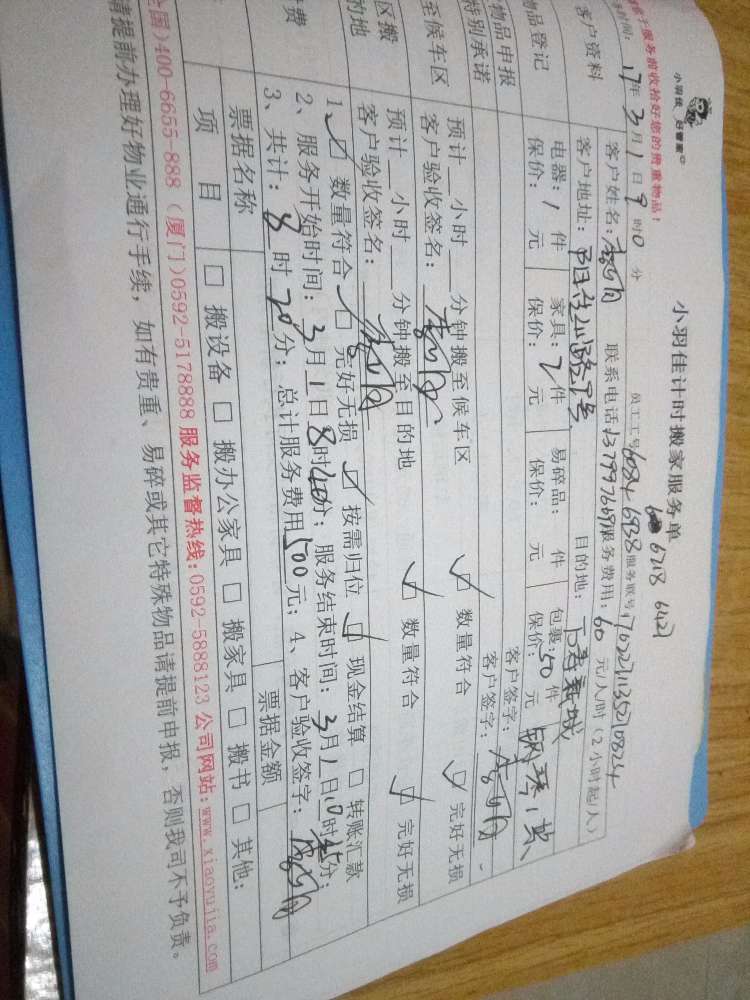 小羽佳 好管家
小羽佳计时搬家服务单
6218 6421
服务前收拾好您的贵重物品!
时间: 17年3月1日9时0分
员工工号 6084 6938 服务联号: 1762271135210824
客户资料
客户姓名: 联系电话: 服务费用: 60 元/人/时(2小时起/人)
客户地址: 目的地:
物品登记
电器: 1 件 家具: 2 件 易碎品: 件 包裹: 50 件 钢琴1架
保价: 元 保价: 元 保价: 元 保价: 元
物品申报
客户签字:
特别承诺
客户签字:
至候车区
预计__小时__分钟搬至候车区 ☑ 数量符合 ☑ 完好无损
客户验收签名:
区搬
的地
预计__小时__分钟搬至目的地 ☑ 数量符合 ☑ 完好无损
客户验收签名:
费
1、☑ 数量符合 ☑ 完好无损 ☑ 按需归位 ☑ 现金结算 □ 转账汇款
2、服务开始时间: 3月1日8时40分; 服务结束时间: 3月1日10时 分;
3、共计: 8时20分; 总计服务费用500元; 4、客户验收签字:
票据名称 票据金额
项 目 □ 搬设备 □ 搬办公家具 □ 搬家具 □ 搬书 □ 其他:
全国)400-6655-888 (厦门)0592-5178888 服务监督热线: 0592-5888123 公司网站: www.xiaoyujia.com
请提前办理好物业通行手续, 如有贵重、易碎或其它特殊物品请提前申报, 否则我司不予负责。